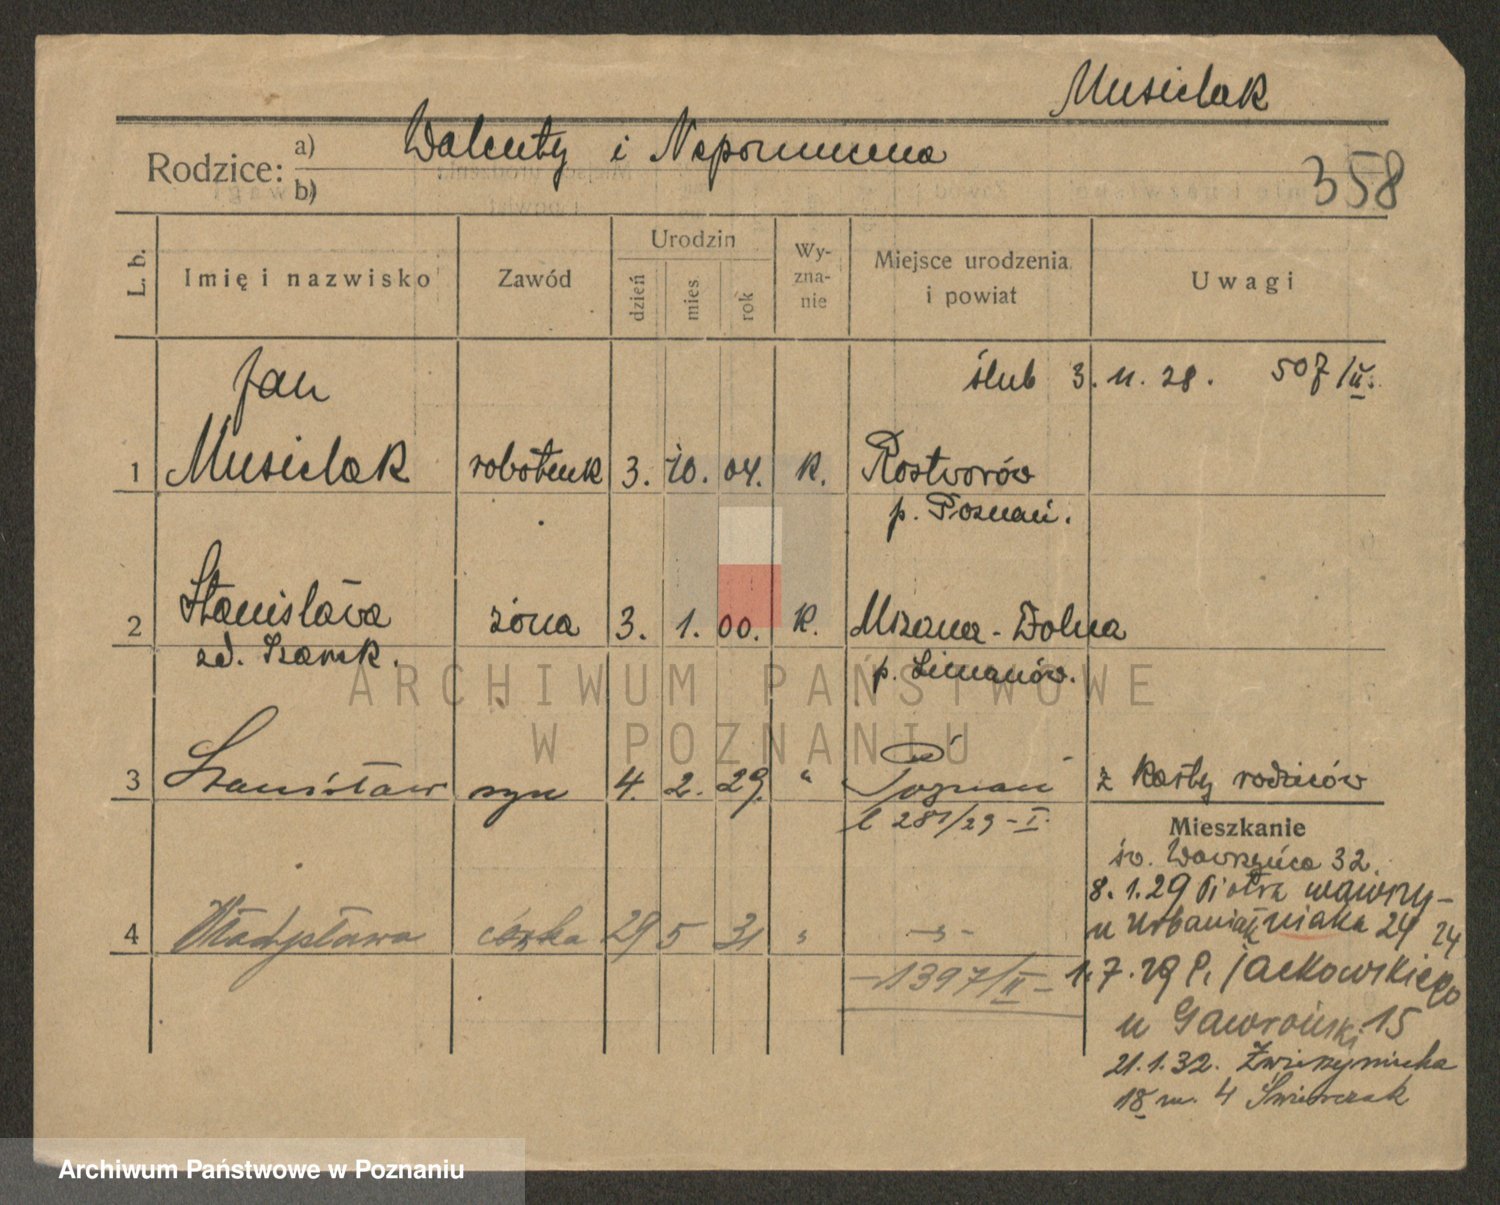 Musielak
Rodzice: a) Walenty i Nepomucena
b)
358
L. b.
Imię i nazwisko
Zawód
Urodzin
dzień
mies
rok
Wy-
zna-
nie
Miejsce urodzenia
i powiat
Uwagi
Jan
ślub 3. 11. 28. 507/II.
1 Musielak robotnik 3. 10. 04. k. Rostworów
p. Poznań.
2 Stanisława żona 3. 1. 00. k. Mszana-Dolna
zd.
p. Limanów.
3 Stanisław syn 4. 2. 29. " Poznań z karty rodziców
/29-I.
Mieszkanie
św. Wawrzyńca 32.
8. 1. 29 Piotra Wawrzy-
niaka 24 24
u Urbaniak
4 Władysława córka 29 5 31 " -"-
-1397/II-
1. 7. 29 P. Jackowskiego
u Gawroński 15
21. 1. 32. Zwierzyniecka
18 m. 4 Świerczak
ARCHIWUM PAŃSTWOWE
W POZNANIU
Archiwum Państwowe w Poznaniu